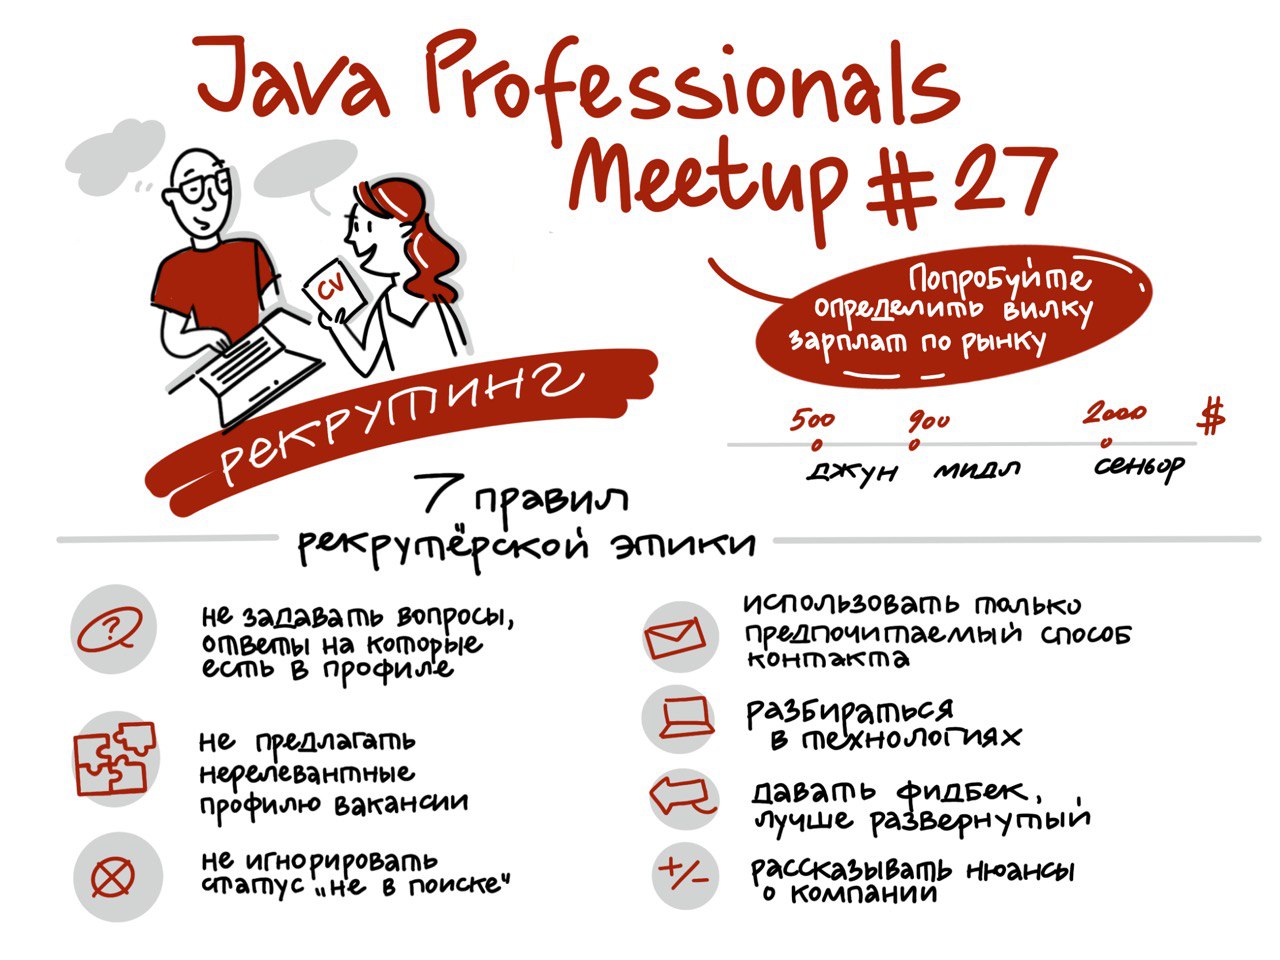 Java Professionals
Meetup #27
CV
рекрутинг
Попробуйте
определить вилку
зарплат по рынку
500 900 2000 $
джун мидл сеньор
7 правил
рекрутёрской этики
?
не задавать вопросы,
ответы на которые
есть в профиле
не предлагать
нерелевантные
профилю вакансии
не игнорировать
статус „не в поиске"
использовать только
предпочитаемый способ
контакта
разбираться
в технологиях
давать фидбек,
лучше развернутый
+/-
рассказывать нюансы
о компании